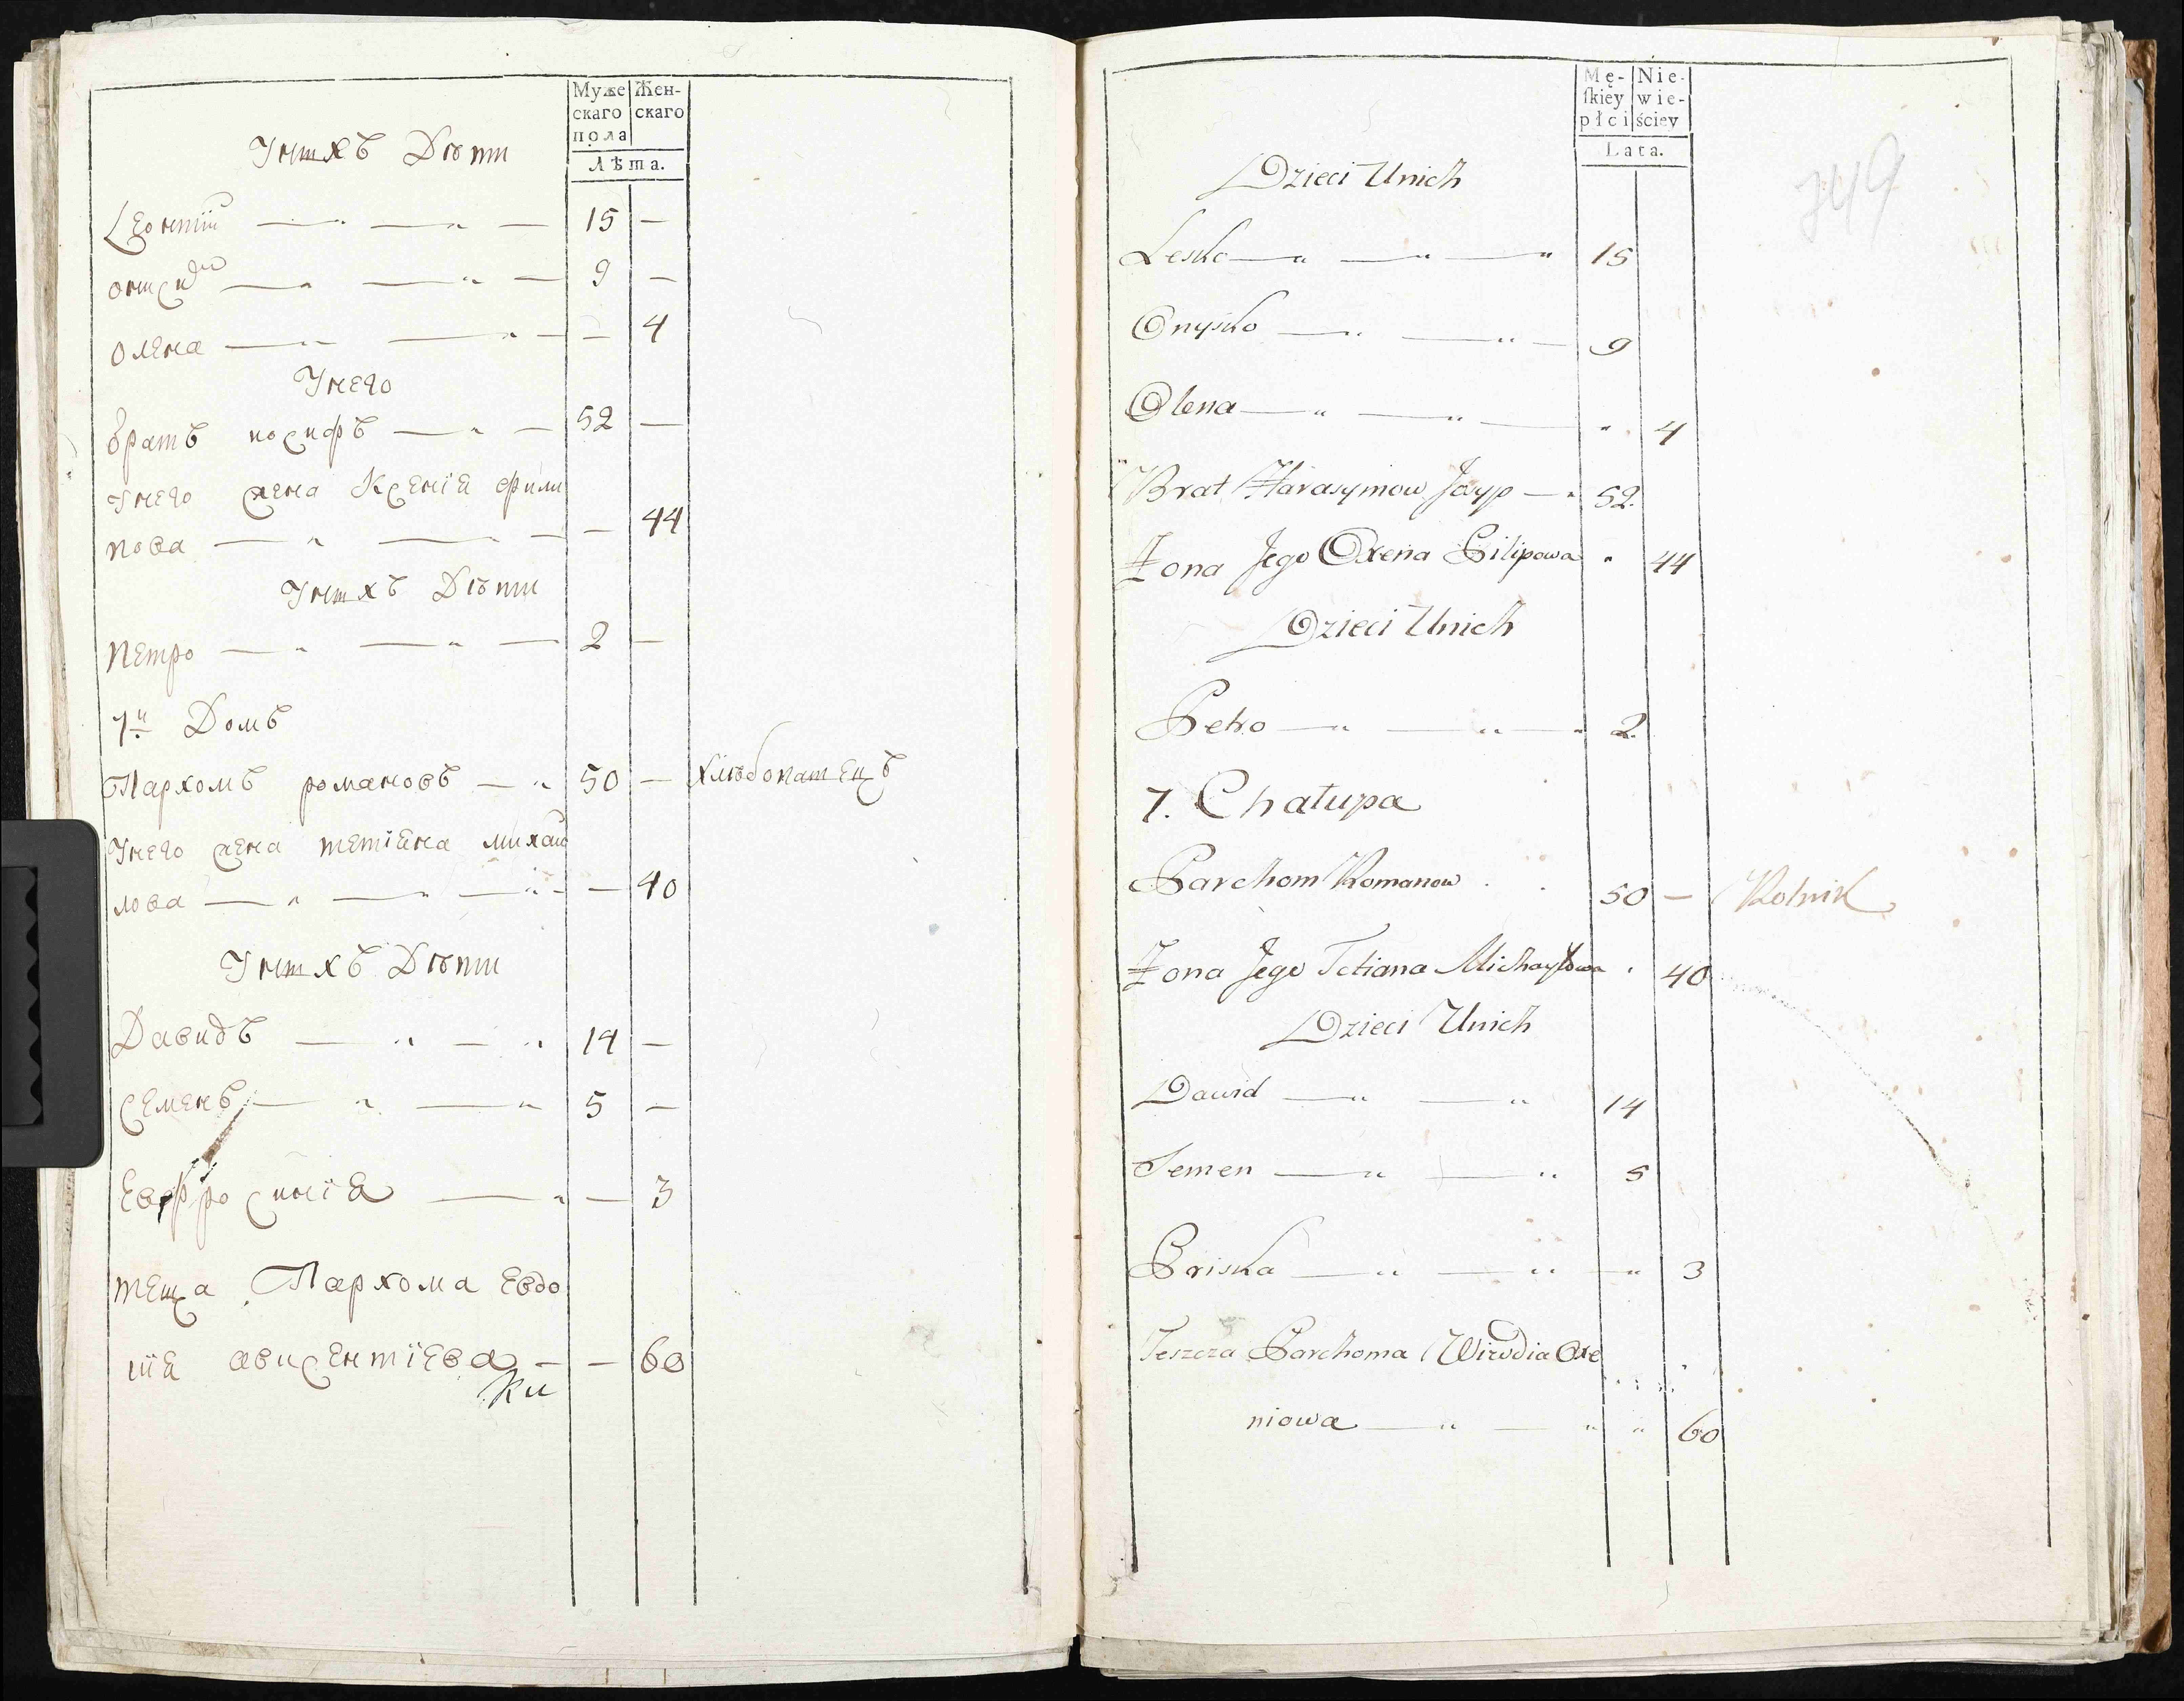 Муже Жен-
скаго скаго
пола
Лѣта.
Унихъ Дѣти
Леонтїй — — — 15 —
Онисид — — — 9 —
Олена — — — — 4
Унего
братъ иосифъ — — 52 —
Унего жена Ксенїя Фили
пова — — — — 44
Унихъ Дѣти
Петро — — — 2 —
7й Домъ
Пархомъ романовъ — 50 — хлѣбопашецъ
Унего жена тетїяна михай
лова — — — — 40
Унихъ Дѣти
Давидъ — — 14 —
Семенъ — — 5 —
Евфросинїя — — 3
теща Пархома Евдо
кїя авксентїева — — 60
Mę- Nie-
ſkiey wie-
płci ściey
Lata.
749
Dzieci Unich
Lesko — — — 15
Onysko — — — 9
Olena — — — 4
Brat Harasymow Josyp — 52.
Żona Jego Oxena Pilipowa 44
Dzieci Unich
Petro — — — 2.
7. Chałupa
Parchom Romanow 50 — Rolnik
Żona Jego Tetiana Michayłowa 40
Dzieci Unich
Dawid — — 14
Semen — — 5
Priska — — — 3
Teszcza Parchoma Wiwdia Oxe
niowa — — 60